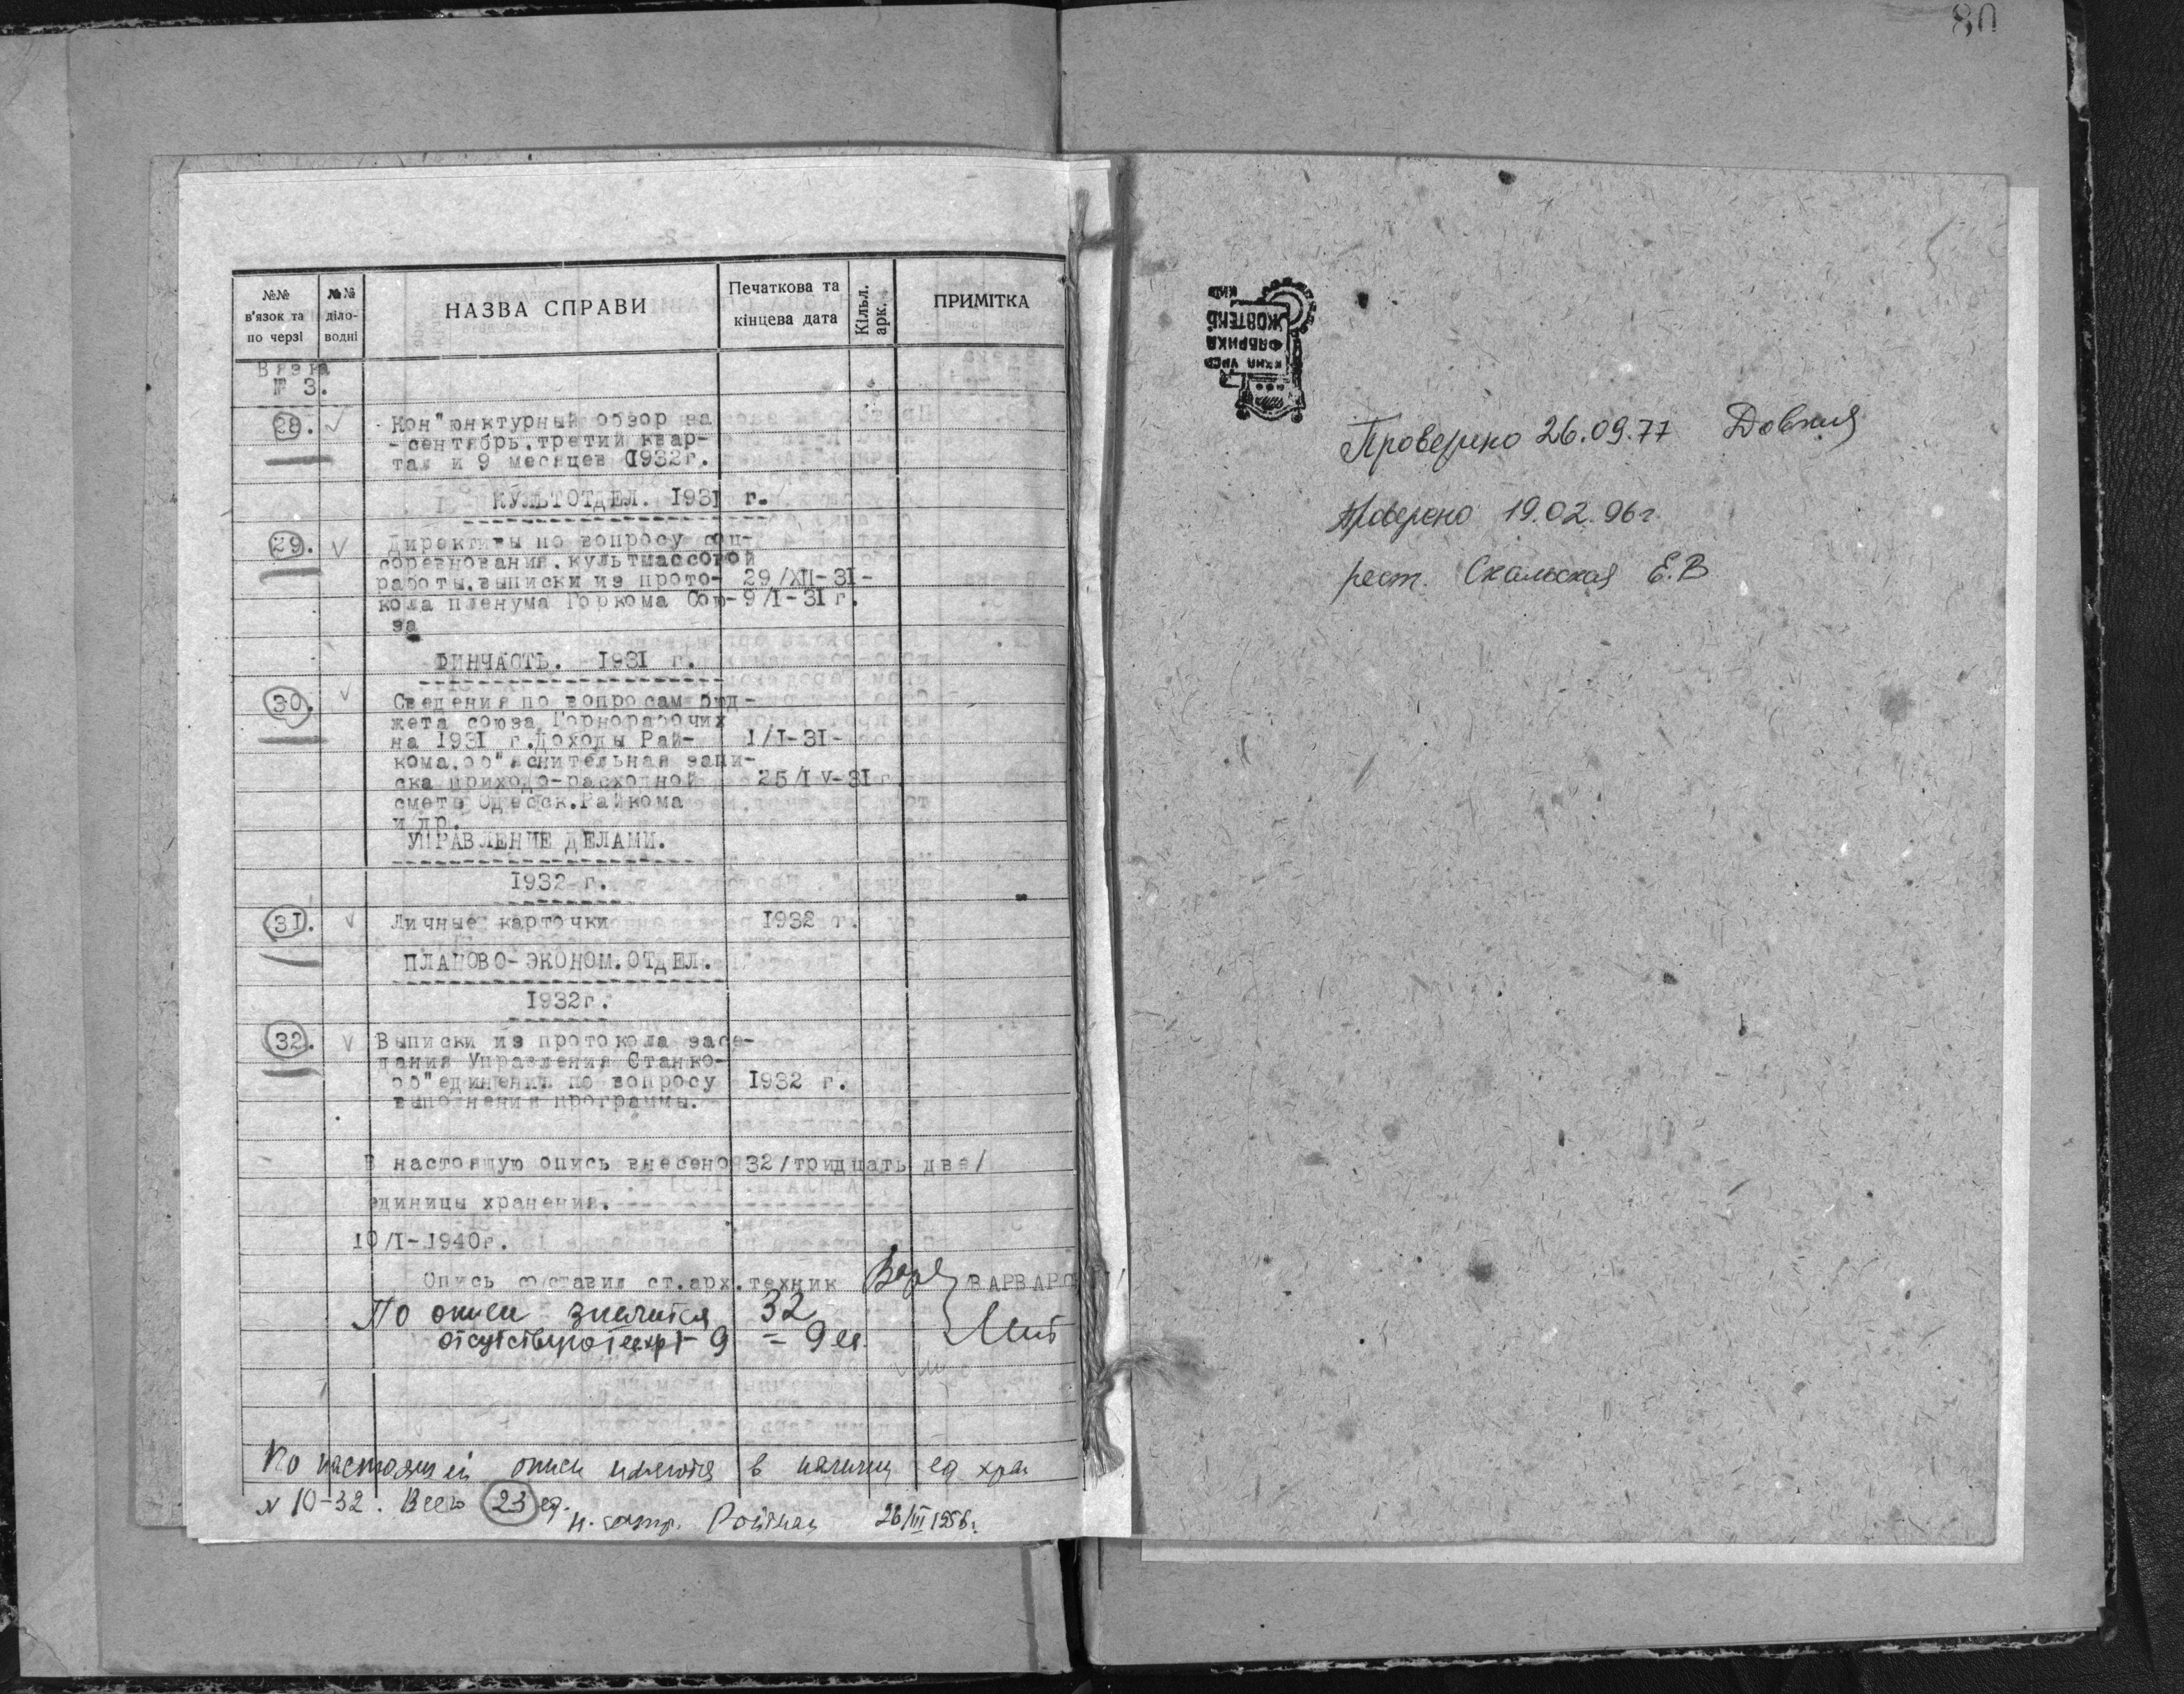 80
№№ в'язок та по черзі
№№ діло- водні
НАЗВА СПРАВИ
Печаткова та кінцева дата
Кільк. арк.
ПРИМІТКА
Вязка
№ 3.
28.
Кон"юнктурный обзор за
- сентябрь, третий квар-
тал и 9 месяцев 1932г.
КУЛЬТОТДЕЛ. 1931 г.
29.
Директивы по вопросу соц-
соревнования, культмассовой
работы, выписки из прото- 29/XII-31-
кола пленума Горкома Сою- 9/I-31 г.
за
ФИНЧАСТЬ. 1931 г.
30.
Сведения по вопросам бюд-
жета союза Горнорабочих
на 1931 г. Доходы Рай- 1/I-31-
кома, об"яснительная запи-
ска приходо-расходной 25/IV-31 г.
смете Одесск. Райкома
и др.
УПРАВЛЕНИЕ ДЕЛАМИ.
1932 г.
31. Личные карточки 1932 г.
ПЛАНОВО-ЭКОНОМ. ОТДЕЛ.
1932г.
32. Выписки из протокола засе-
дания Управления Станко-
об"единения по вопросу 1932 г.
выполнения программы.
В настоящую опись внесено 32/тридцать два/
единицы хранения.
10/I-1940г.
Опись составил ст.арх.техник /ВАРВАРО
По описи значится 32
отсутствуют 9 = 9 ед.
По настоящей описи имеются в наличии ед хран
№ 10-32. Всего 23 ед.
н. сотр. Ройтман 26/III 1956г.
КИЇВ
ЖОВТЕНЬ
ФАБРИКА
УРСР
Проверено 26.09.77 Довгая
Проверено 19.02.96г
рест. Скальская Е.В